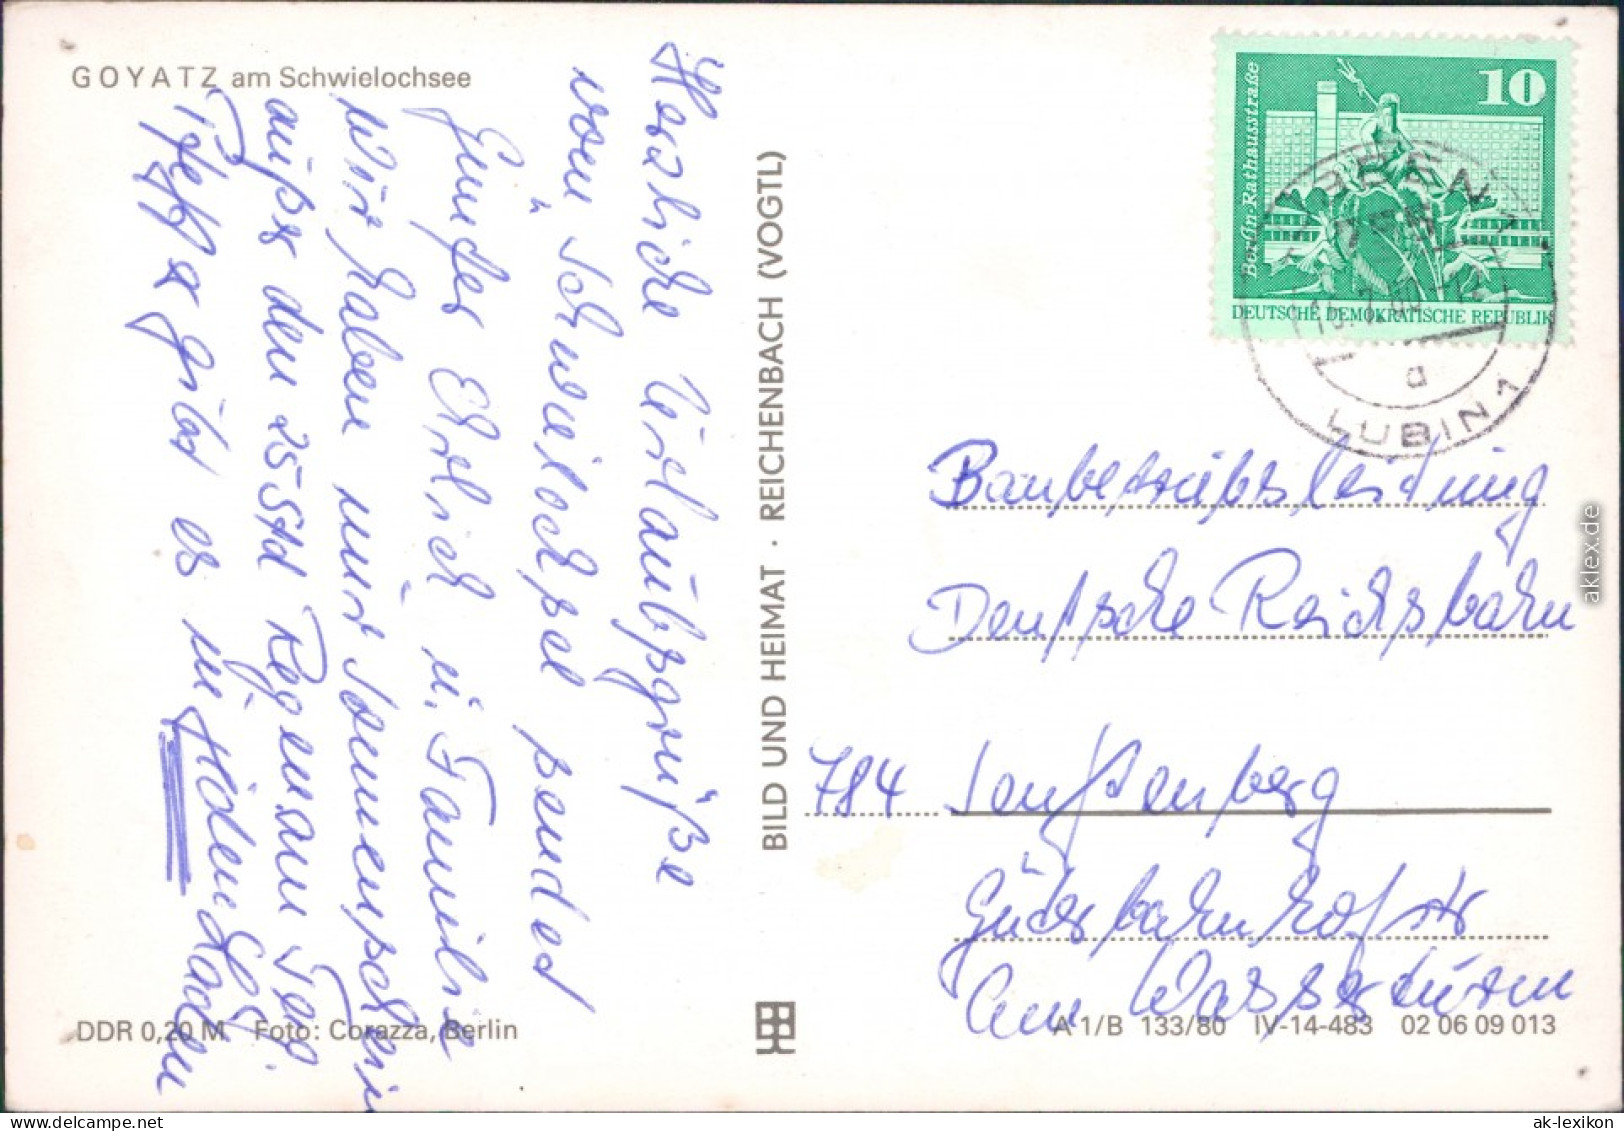 GOYATZ am Schwielochsee
Herzliche Urlaubsgrüße
vom Schwielochsee sendet
Günter Ehrlich u. Familie
Wir haben nur Sonnenschein
außer den 25 Std Regen am Tag.
Pfeffer gibt es in jeden Laden
DDR 0,20 M Foto: Corazza, Berlin
BILD UND HEIMAT · REICHENBACH (VOGTL)
10
Berlin-Rathausstraße
DEUTSCHE DEMOKRATISCHE REPUBLIK
a
LUBIN 1
Baubetriebsleitung
Deutsche Reichsbahn
784 Senftenberg
Güterbahnhofstr
Am Wasserturm
A 1/B 133/80 IV-14-483 02 06 09 013
aklex.de
ak-lexikon